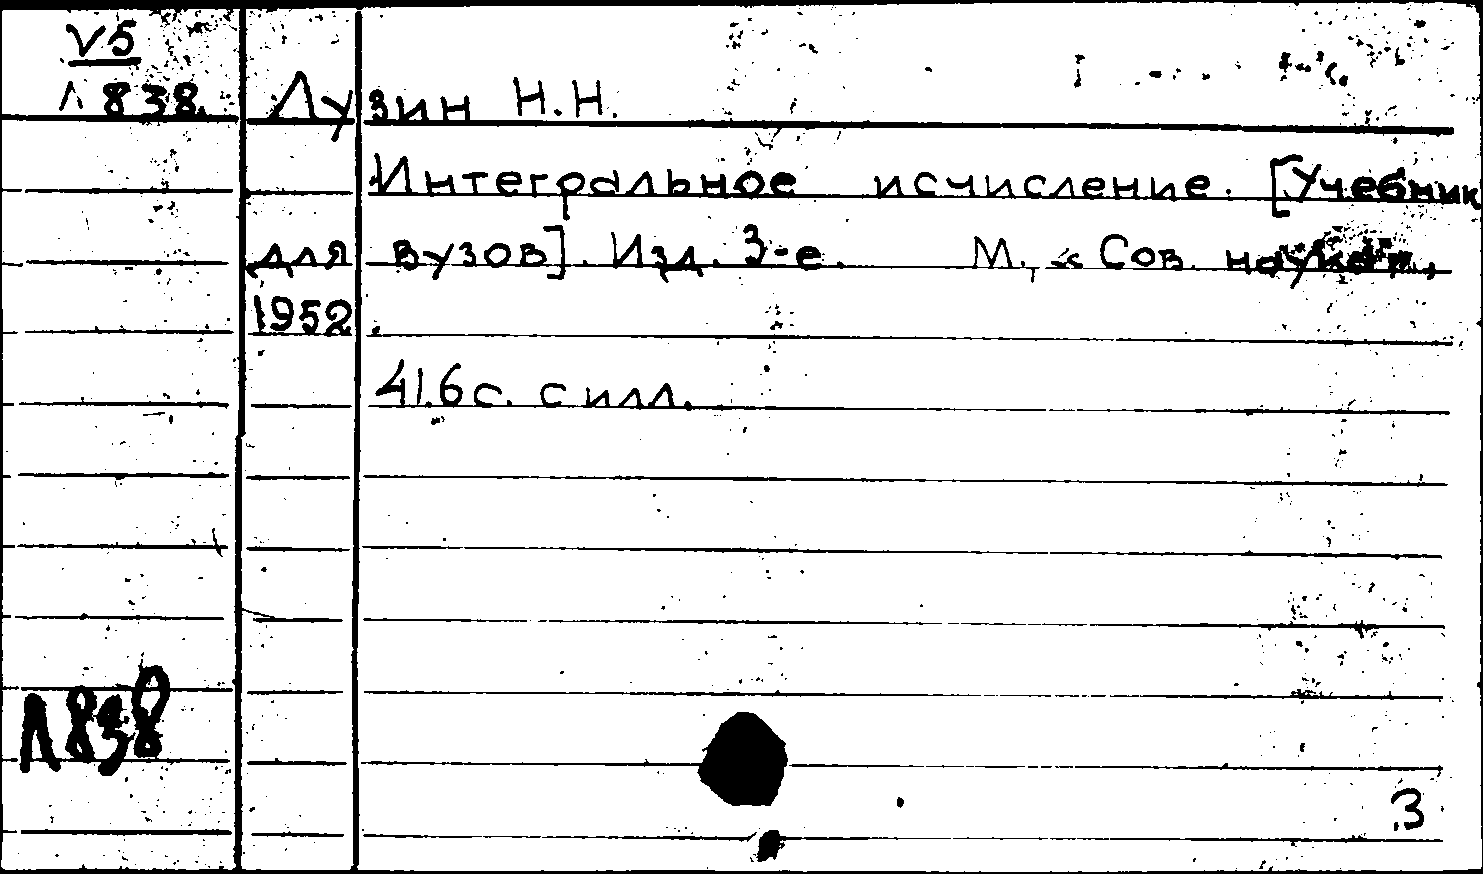 V5
Л 838. Лузин Н.Н.
Интегральное исчисление. [Учебник
для вузов]. Изд. 3-е. М., «Сов. наука»,
1952.
416 с. с илл.
Л838
3